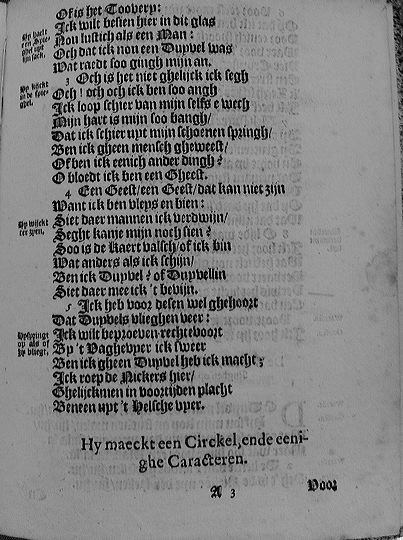 Of is het Toovery:
Ick wilt besien hier in dit glas
Nou lustich als een Man:
Och dat ick nou een Duyvel was
Wat raedt soo gingh mijn an.
3 Och is het niet ghelijck ick segh
Och! och och ick ben soo angh
Ick loop schier van mijn selfs e wech
Mijn hart is mijn soo bangh/
Dat ick schier uyt mijn schoenen springh/
Ben ick gheen mensch gheweest/
Of ben ick eenich ander dingh?
O bloedt ick ben een Gheest.
4 Een Geest/een Geest/dat kan niet zijn
Want ick ben vleys en bien:
Siet daer mannen ick verdwijn/
Seght kanje mijn noch sien?
Soo is de Kaert valsch/of ick bin
Wat anders als ick schijn/
Ben ick Duyvel? of Duyvellin
Siet daer mee ick 't bevijn.
5 Ick heb voor desen wel ghehoort
Dat Duyvels vlieghen veer:
Ick wilt beproeven rechtevoort
By 't Vaghevyer ick sweer
Ben ick gheen Duyvel heb ick macht;
Ick roep de Nickers hier/
Ghelijckmen in voortijden placht
Beneen uyt 't Helsche vyer.
Hy haelt
een Spie-
ghel uyt
sijn sack.
Hy kijckt
in de spie-
ghel.
Hy wijckt
ter zyen.
Hy springt
op als of
hy vliegt.
Hy maeckt een Circkel, ende eeni-
ghe Caracteren.
A 3
Voor